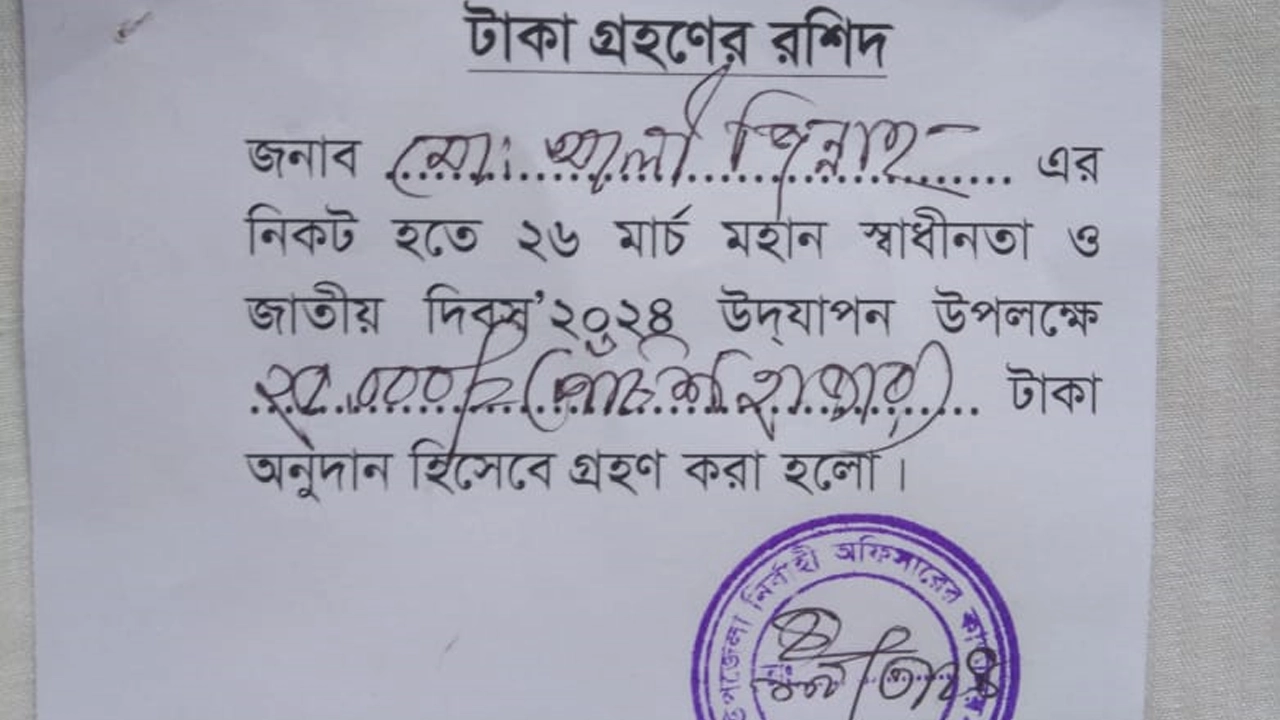 টাকা গ্রহণের রশিদ
জনাব মোঃ আলী জিন্নাহ এর
নিকট হতে ২৬ মার্চ মহান স্বাধীনতা ও
জাতীয় দিবস'২০২৪ উদ্‌যাপন উপলক্ষে
২৫,০০০/= হাজার) টাকা
অনুদান হিসেবে গ্রহণ করা হলো।
উপজেলা নির্বাহী অফিসারের